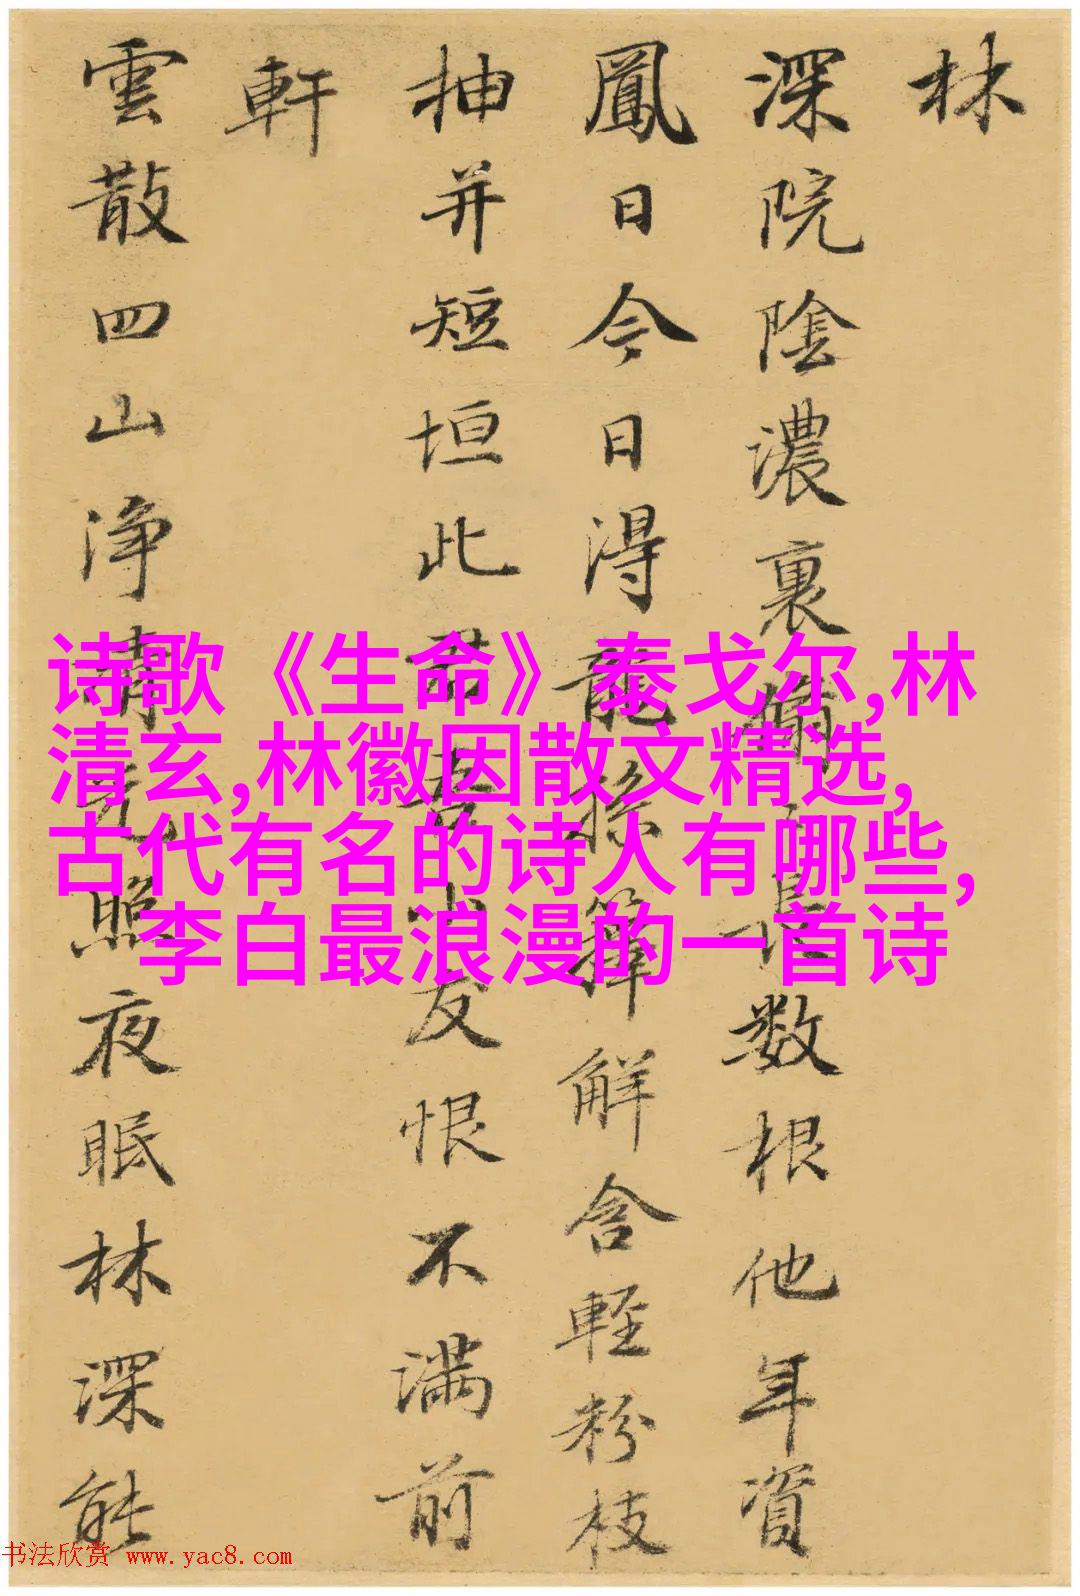 林
深院陰濃裏長数根他年資
鳳日今日得龍孫籜解含輕粉枝
抽并短垣此君吾小友恨不滿前
軒
雲散四山淨清光照夜眠林深能
诗歌《生命》泰戈尔,林
清玄,林徽因散文精选,
古代有名的诗人有哪些,
李白最浪漫的一首诗
书法欣赏 www.yac8.com